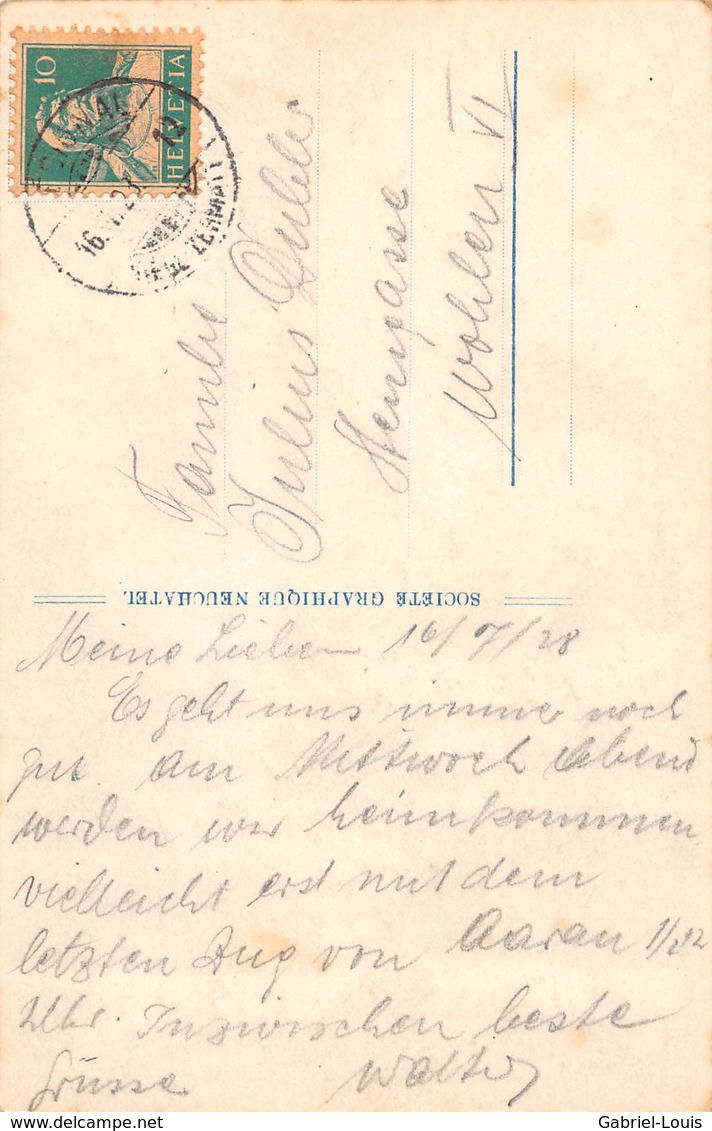 10
HELVETIA
16. VII.28
12
ZERMATT
Familie
Julius Dubler
Sterngasse
Wohlen VI
SOCIÉTÉ GRAPHIQUE NEUCHATEL
Meine Lieben 16/7/28
Es geht uns immer noch
gut. Am Mittwoch Abend
werden wir heimkommen
vielleicht erst mit dem
letzten Zug von Aarau 1/2 12
Uhr. Inzwischen beste
Grüsse Walter
delcampe.net
Gabriel-Louis